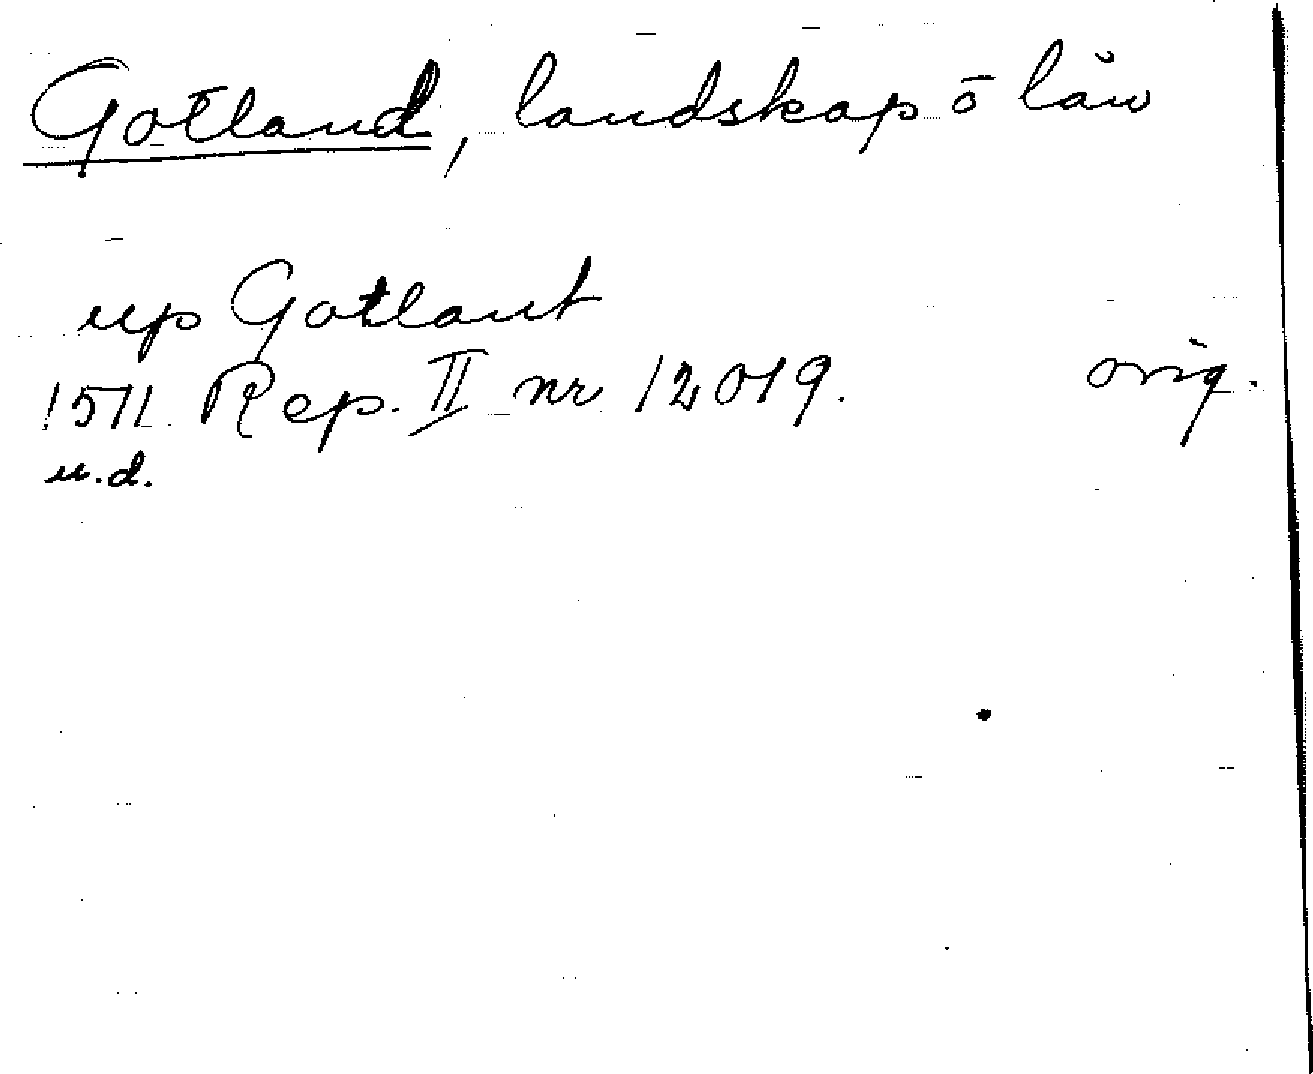 Gotland, landskap o län
up Gotlant
1511 Rep. II nr 12019. orig.
u.d.